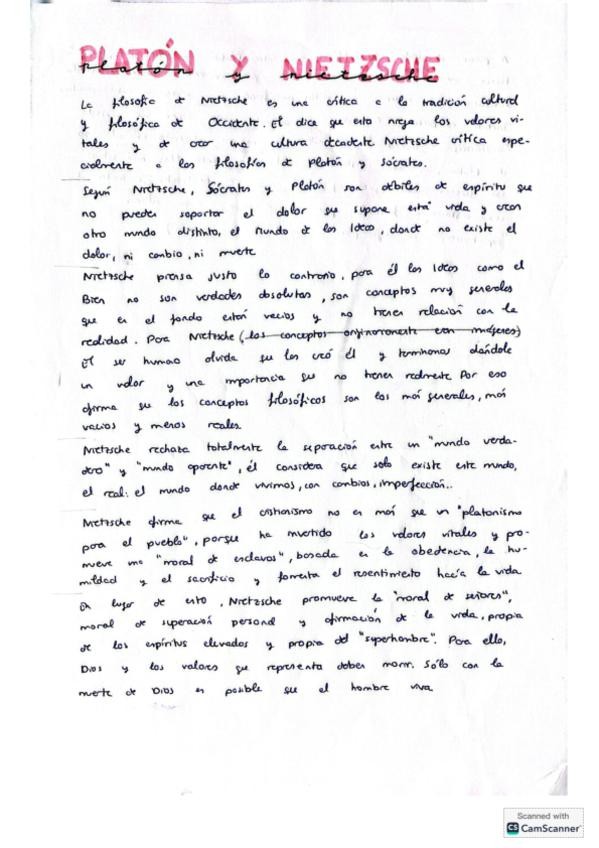 PLATÓN Y NIETZSCHE
platón y nietzsche
La filosofía de Nietzsche es una crítica a la tradición cultural
y filosófica de Occidente. Él dice que esta niega los valores vi-
tales y de crear una cultura decadente Nietzsche crítica espe-
cialmente a las filosofías de Platón y Sócrates.
Según Nietzsche, Sócrates y Platón son débiles de espíritu que
no pueden soportar el dolor que supone está vida y crean
otro mundo distinto, el Mundo de las Ideas, donde no existe el
dolor, ni cambio, ni muerte
Nietzsche piensa justo lo contrario, para él las Ideas como el
Bien no son verdades absolutas, son conceptos muy generales
que en el fondo están vacíos y no tienen relación con la
realidad. Para Nietzsche (los conceptos originariamente eran imágenes)
El ser humano olvida que los creó él y terminamos dándole
un valor y una importancia que no tienen realmente Por eso
afirma que los conceptos filosóficos son los más generales, más
vacíos y menos reales.
Nietzsche rechaza totalmente la separación entre un "mundo verda-
dero" y "mundo aparente", él considera que solo existe este mundo,
el real: el mundo donde vivimos, con cambios, imperfección..
Nietzsche afirma que el cristianismo no es más que un "platonismo
para el pueblo", porque ha invertido los valores vitales y pro-
mueve una "moral de esclavos", basada en la obediencia, la hu-
mildad y el sacrificio y fomenta el resentimiento hacía la vida
En lugar de esto, Nietzsche promueve la "moral de señores",
moral de superación personal y afirmación de la vida, propia
de los espíritus elevados y propia del "superhombre". Para ello,
Dios y los valores que representa deben morir. Sólo con la
muerte de Dios es posible que el hombre viva
Scanned with
CS CamScanner